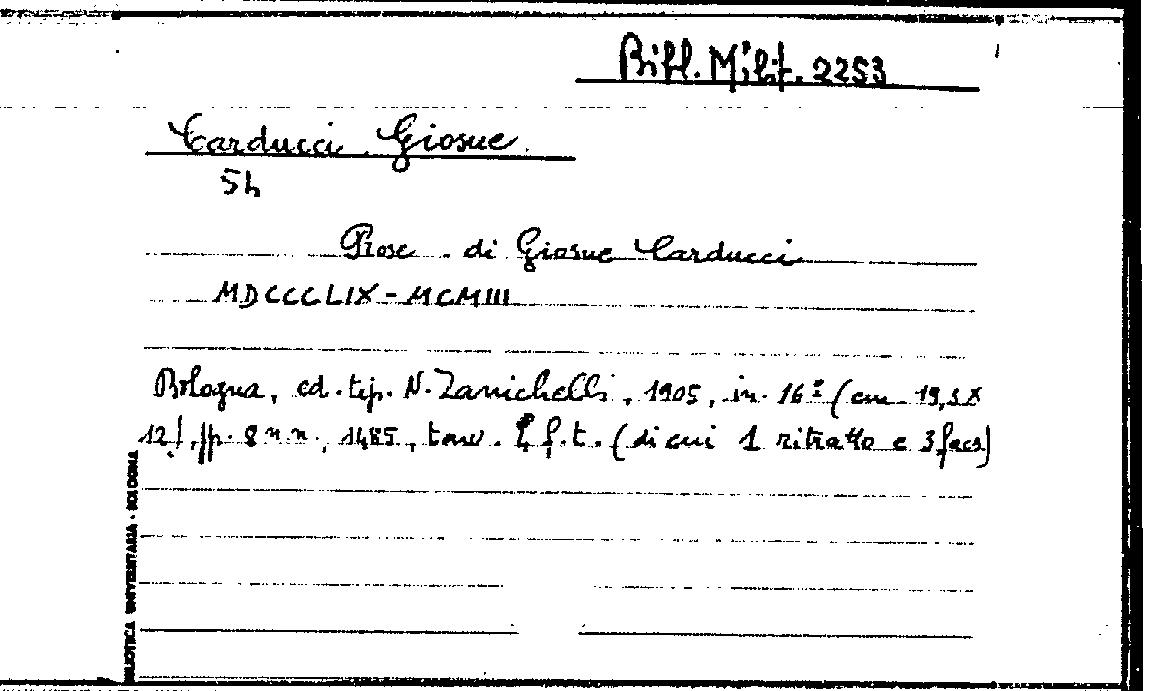 Bibl. Milit. 2253
Carducci Giosue
5h
Prose di Giosue Carducci
MDCCCLIX - MCMIII
Bologna, ed. tip. N. Zanichelli, 1905, in 16° (cm 19,5 x
12), pp. 8 n.n., 1485, tav. f.t. (di cui 1 ritratto e 3 facs)
BIBLIOTECA UNIVERSITARIA - BOLOGNA